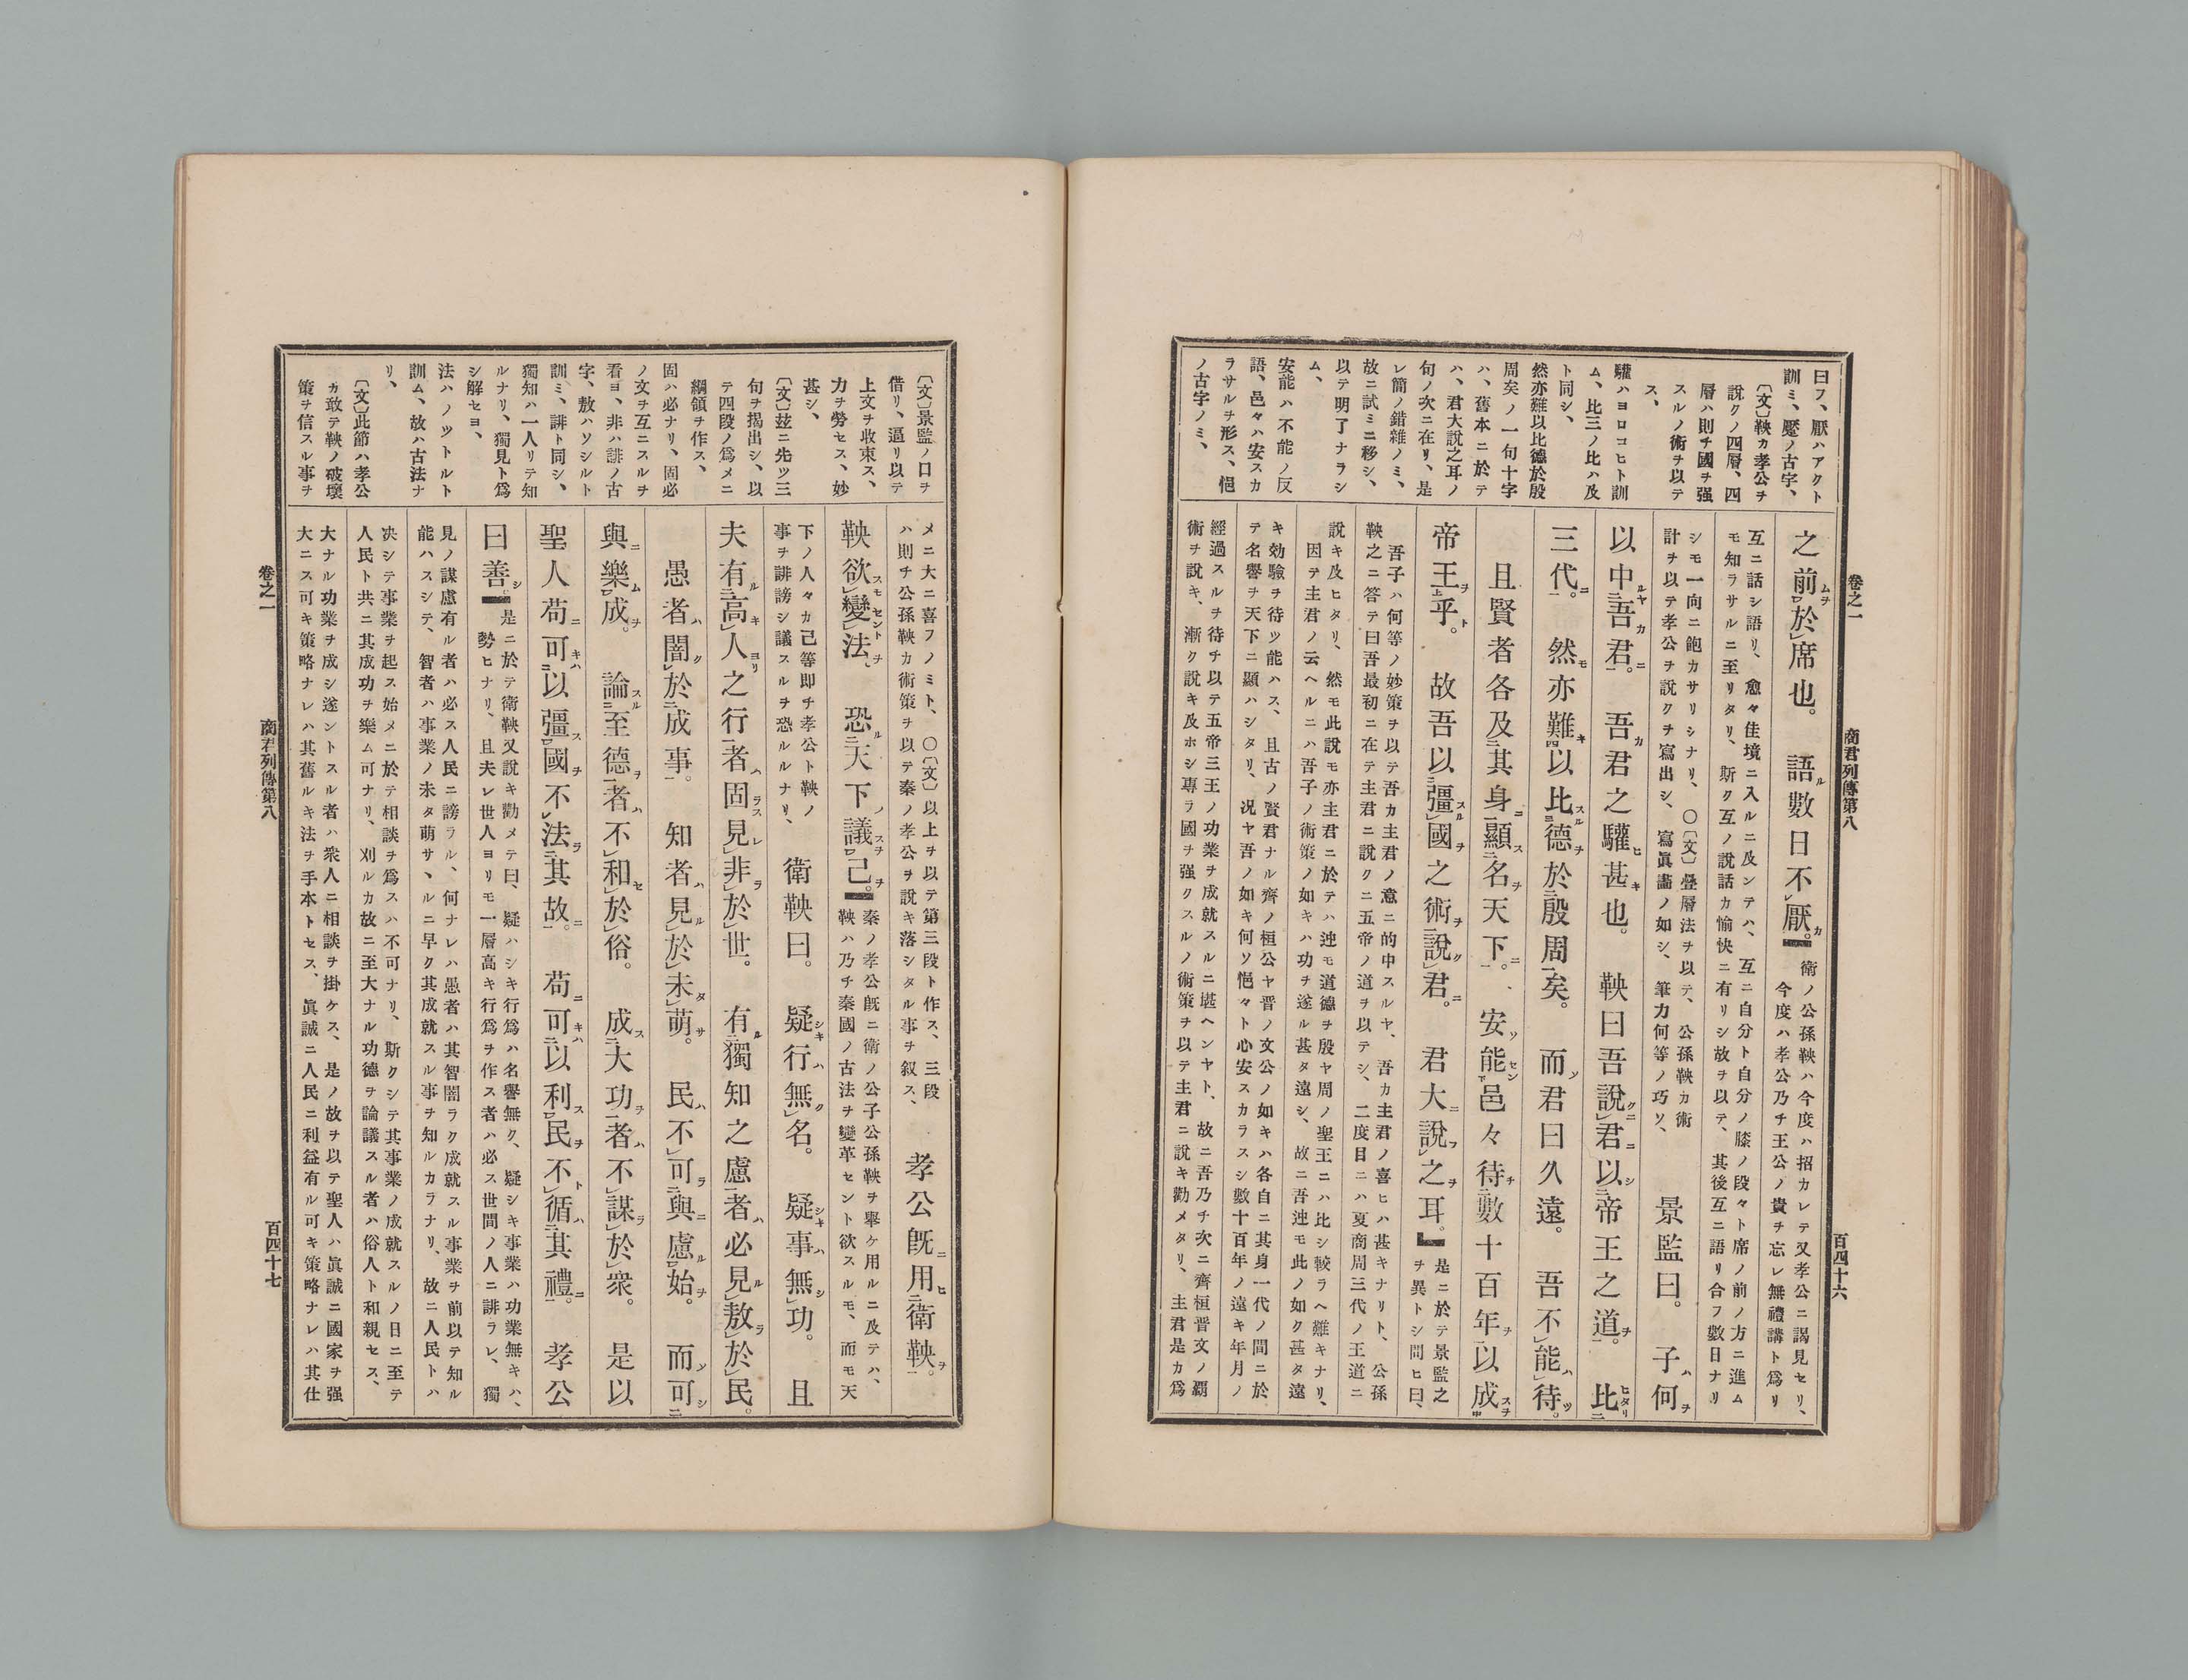 卷之一　商君列傳第八　百四十六
曰フ、厭ハアクト
訓ミ、饜ノ古字、
〔文〕鞅カ孝公ヲ
說クノ四層、四
層ハ則チ國ヲ强
スルノ術ヲ以テ
ス、
驩ハヨロコヒト訓
ム、比三ノ比ハ及
ト同シ、
然亦難以比德於殷
周矣ノ一句十字
ハ、舊本ニ於テ
ハ、君大說之耳ノ
句ノ次ニ在リ、是
レ簡ノ錯雜ノミ、
故ニ試ミニ移シ、
以テ明了ナラシ
ム、
安能ハ不能ノ反
語、邑々ハ安スカ
ラサルヲ形ス、悒
ノ古字ノミ、
之前於席也。語數日不厭。
衛ノ公孫鞅ハ今度ハ招カレテ又孝公ニ謁見セリ、
今度ハ孝公乃チ王公ノ貴ヲ忘レ無禮講ト爲リ
互ニ話シ語リ、愈々佳境ニ入ルニ及ンテハ、互ニ自分ト自分ノ膝ノ段々ト席ノ前ノ方ニ進ム
モ知ラサルニ至リタリ、斯ク互ノ說話カ愉快ニ有リシ故ヲ以テ、其後互ニ語リ合フ數日ナリ
シモ一向ニ飽カサリシナリ、〇〔文〕疊層法ヲ以テ、公孫鞅カ術
計ヲ以テ孝公ヲ說クヲ寫出シ、寫眞畵ノ如シ、筆力何等ノ巧ソ、
景監曰。子何
以中吾君。吾君之驩甚也。鞅曰吾說君以帝王之道。比
三代。然亦難以比德於殷周矣。而君曰久遠。吾不能待。
且賢者各及其身顯名天下。安能邑々待數十百年以成
帝王乎。故吾以彊國之術說君。君大說之耳。
是ニ於テ景監之
ヲ異トシ問ヒ曰、
吾子ハ何等ノ妙策ヲ以テ吾カ主君ノ意ニ的中スルヤ、吾カ主君ノ喜ヒハ甚キナリト、公孫
鞅之ニ答テ曰吾最初ニ在テ主君ニ說クニ五帝ノ道ヲ以テシ、二度目ニハ夏商周三代ノ王道ニ
說キ及ヒタリ、然モ此說モ亦主君ニ於テハ迚モ道德ヲ殷ヤ周ノ聖王ニハ比シ較ラヘ難キナリ、
因テ主君ノ云ヘルニハ吾子ノ術策ノ如キハ功ヲ遂ル甚タ遠シ、故ニ吾迚モ此ノ如ク甚タ遠
キ効驗ヲ待ツ能ハス、且古ノ賢君ナル齊ノ桓公ヤ晋ノ文公ノ如キハ各自ニ其身一代ノ間ニ於
テ名譽ヲ天下ニ顯ハシタリ、況ヤ吾ノ如キ何ソ悒々ト心安スカラスシ數十百年ノ遠キ年月ノ
經過スルヲ待チ以テ五帝三王ノ功業ヲ成就スルニ堪ヘンヤト、故ニ吾乃チ次ニ齊桓晋文ノ覇
術ヲ說キ、漸ク說キ及ホシ專ラ國ヲ强クスルノ術策ヲ以テ主君ニ說キ勸メタリ、主君是カ爲
〔文〕景監ノ口ヲ
借リ、逼リ以テ
上文ヲ收束ス、
力ヲ勞セス、妙
甚シ、
〔文〕玆ニ先ツ三
句ヲ揭出シ、以
テ四段ノ爲メニ
綱領ヲ作ス、
固ハ必ナリ、固必
ノ文ヲ互ニスルヲ
看ヨ、非ハ誹ノ古
字、敖ハソシルト
訓ミ、誹ト同シ、
獨知ハ一人リテ知
ルナリ、獨見ト爲
シ解セヨ、
法ハノツトルト
訓ム、故ハ古法ナ
リ、
〔文〕此節ハ孝公
カ敢テ鞅ノ破壞
策ヲ信スル事ヲ
メニ大ニ喜フノミト、〇〔文〕以上ヲ以テ第三段ト作ス、三段
ハ則チ公孫鞅カ術策ヲ以テ秦ノ孝公ヲ說キ落シタル事ヲ叙ス、
孝公旣用衛鞅。
鞅欲變法、恐天下議己。
秦ノ孝公旣ニ衛ノ公子公孫鞅ヲ擧ケ用ルニ及テハ、
鞅ハ乃チ秦國ノ古法ヲ變革セント欲スルモ、而モ天
下ノ人々カ己等即チ孝公ト鞅ノ
事ヲ誹謗シ議スルヲ恐ルルナリ、
衛鞅曰。疑行無名。疑事無功。且
夫有高人之行者固見非於世。有獨知之慮者必見敖於民。
愚者闇於成事。知者見於未萌。民不可與慮始。而可
與樂成。論至德者不和於俗。成大功者不謀於衆。是以
聖人苟可以彊國不法其故。苟可以利民不循其禮。孝公
曰善。
是ニ於テ衛鞅又說キ勸メテ曰、疑ハシキ行爲ハ名譽無ク、疑シキ事業ハ功業無キハ、
勢ヒナリ、且夫レ世人ヨリモ一層高キ行爲ヲ作ス者ハ必ス世間ノ人ニ誹ラレ、獨
見ノ謀慮有ル者ハ必ス人民ニ謗ラル、何ナレハ愚者ハ其智闇ラク成就スル事業ヲ前以テ知ル
能ハスシテ、智者ハ事業ノ未タ萌サヽルニ早ク其成就スル事ヲ知ルカラナリ、故ニ人民トハ
决シテ事業ヲ起ス始メニ於テ相談ヲ爲スハ不可ナリ、斯クシテ其事業ノ成就スルノ日ニ至テ
人民ト共ニ其成功ヲ樂ム可ナリ、刈ルカ故ニ至大ナル功德ヲ論議スル者ハ俗人ト和親セス、
大ナル功業ヲ成シ遂ントスル者ハ衆人ニ相談ヲ掛ケス、是ノ故ヲ以テ聖人ハ眞誠ニ國家ヲ强
大ニス可キ策略ナレハ其舊ルキ法ヲ手本トセス、眞誠ニ人民ニ利益有ル可キ策略ナレハ其仕
卷之一　商君列傳第八　百四十七